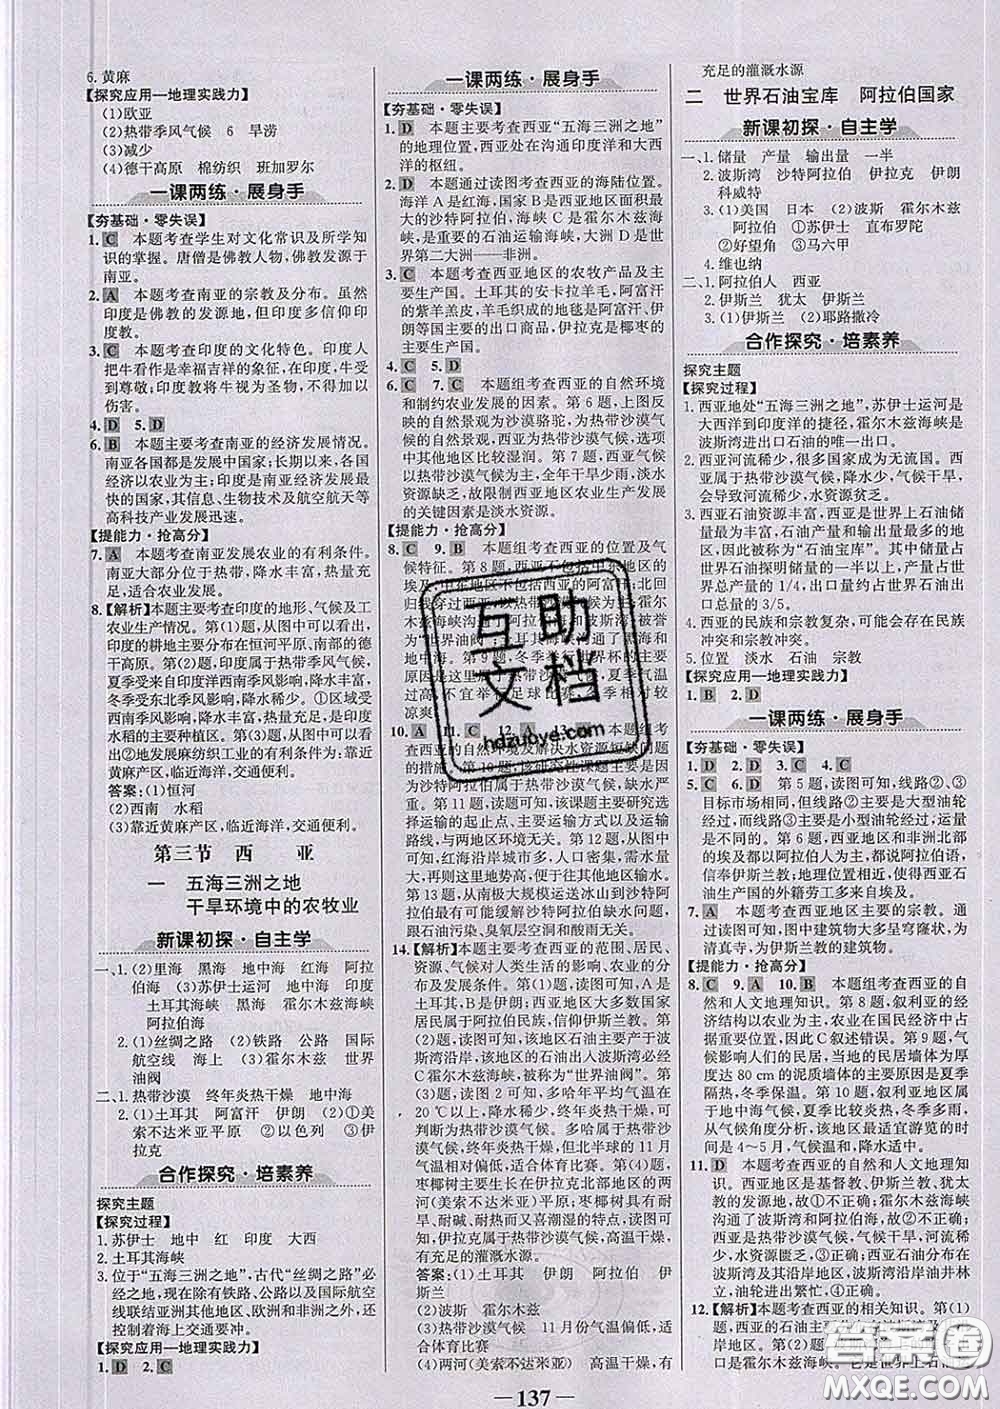 6. 黄麻
【探究应用—地理实践力】
(1)欧亚
(2)热带季风气候　6　旱涝
(3)减少
(4)德干高原　棉纺织　班加罗尔
一课两练·展身手
【夯基础·零失误】
1. C　本题考查学生对文化常识及所学知
识的掌握。唐僧是佛教人物,佛教发源于
南亚。
2. A　本题考查南亚的宗教及分布。虽然
印度是佛教的发源地,但印度多信仰印度
教。
3. C　本题考查印度的文化特色。印度人
把牛看作是幸福吉祥的象征,在印度,牛
受到尊敬;印度教将牛视为圣物,不得加以
伤害。
4. D　5. D
6. B　本题主要考查南亚的经济发展情况。
南亚各国都是发展中国家;长期以来,各国
经济以农业为主;印度是南亚经济发展最
快的国家,其信息、生物技术及航空航天等
高科技产业发展迅速。
【提能力·抢高分】
7. A　本题考查南亚发展农业的有利条件。
南亚大部分位于热带,降水丰富,热量充
足,适合农业发展。
8.【解析】本题主要考查印度的地形、气候及工
农业生产情况。第(1)题,从图中可以看出,
印度的耕地主要分布在恒河平原、南部的德
干高原。第(2)题,印度属于热带季风气候,
夏季受来自印度洋西南季风影响,降水丰富,
冬季受东北季风影响,降水较少。①区域受
西南季风影响,降水丰富,热量充足,是印度
水稻的主要种植区。第(3)题,从图中可以看
出②地发展麻纺织工业的有利条件为:靠近
黄麻产区,临近海洋,交通便利。
答案:(1)恒河
(2)西南　水稻
(3)靠近黄麻产区,临近海洋,交通便利。
第三节　西　亚
一　五海三洲之地
干旱环境中的农牧业
新课初探·自主学
一、1. (2)里海　黑海　地中海　红海　阿拉
伯海　(3)苏伊士运河　地中海　印度
土耳其海峡　黑海　霍尔木兹海峡
阿拉伯海
2. (1)丝绸之路　(2)铁路　公路　国际
航空线　海上　(3)霍尔木兹　世界
油阀
二、1. 热带沙漠　终年炎热干燥　地中海
2. (1)土耳其　阿富汗　伊朗　(2)①美
索不达米亚平原　②以色列　③伊
拉克
合作探究·培素养
探究主题
【探究过程】
1. 苏伊士　地中　红　印度　大西
2. 土耳其海峡
3. 位于“五海三洲之地”,古代“丝绸之路”必
经之地,现在除有铁路、公路以及国际航空
线联结亚洲其他地区、欧洲和非洲之外,还
控制着海上交通要冲。
【探究应用—地理实践力】
1. D　2. C
一课两练·展身手
【夯基础·零失误】
1. D　本题主要考查西亚“五海三洲之地”
的地理位置,西亚处在沟通印度洋和大西
洋的枢纽。
2. D　本题通过读图考查西亚的海陆位置。
海洋 A 是红海,国家 B 是西亚面积最大的
沙特阿拉伯,海峡 C 是霍尔木兹海峡,
是重要的石油运输海峡,大洲 D 是世界
第二大洲——非洲。
3. C　本题考查西亚地区的农牧产品及主
要生产国。土耳其的安卡拉羊毛,阿富汗
的紫羔羊羔皮,羊毛织成的地毯是阿富汗、伊
朗等国主要的出口商品,伊拉克是椰枣的主
要生产国。
4. C　5. D
6. C　7. C　本题组考查西亚的自然环境
和制约农业发展的因素。第 6 题,上图反
映的自然景观为沙漠骆驼,为热带沙漠气
候的自然景观,西亚为热带沙漠气候,选项
中其他地区比较湿润。第 7 题,西亚气候
以热带沙漠气候为主,全年干旱少雨,淡水
资源缺乏,故限制西亚地区农业生产发展
的关键因素是淡水资源。
【提能力·抢高分】
8. C　9. B　本题组考查西亚的位置及气
候特征。第 8 题,西亚不包括中东地区的
埃及,中东地区不包括西亚的阿富汗;北回
海和地
中海。第 9 题,
凉爽
10. A　11. C　12. A　13.
考查西亚的自然环境及解决水资源短缺问题
的措施。第 10 题,该研究性课题主要是因为
沙特阿拉伯属于热带沙漠气候,淡水资源缺乏
严重。第 11 题,读题可知,该课题主要研究选择
运输的起点、主要运输方式以及运输
路线,与两地区环境无关。第 12 题,从图中可
知,红海沿岸城市多,人口多,需水量大;再
加上这里地势高,便于往其他地区输水。
第 13 题,从南极大规模运送冰山到沙特阿
拉伯最有可能缓解沙特阿拉伯缺水问题,
跟石油污染、臭氧层空洞和酸雨无关。
14.【解析】本题主要考查西亚的范围、居民、
资源、气候对人类生活的影响、农业的分布
及发展条件等。第(1)题,读图可知,A 是
土耳其,B 是伊朗;西亚地区大多数国家
居民属于阿拉伯民族,信仰伊斯兰教。
第(2)题,西亚地区石油主要产于波斯
湾沿岸,该地区的石油出入波斯湾必经
C 霍尔木兹海峡,被称为“世界油阀”。第
(3)题,读图 2 可知,多哈年平均气温在
20 ℃以上,降水稀少,终年炎热干燥,可
判断为热带沙漠气候。多哈属于热带沙
漠气候,终年炎热干燥,但北半球的 11 月
气温相对较低,适合体育比赛。第(4)题,
枣椰树主要产于伊拉克北部地区的两
河(美索不达米亚)平原;枣椰树具有耐旱、
耐碱、耐热而又喜潮湿的特点,读图可
知,伊拉克属于热带沙漠气候,高温干燥,
有充足的灌溉水源。
答案:(1)土耳其　伊朗　阿拉伯　伊
斯兰
(2)波斯　霍尔木兹
(3)热带沙漠气候　11 月份气温偏低,适
合体育比赛
(4)两河(美索不达米亚)　高温干燥,有
充足的灌溉水源
二　世界石油宝库　阿拉伯国家
新课初探·自主学
一、1. 储量　产量　输出量　一半
2. 波斯湾　沙特阿拉伯　伊拉克　伊朗
科威特
3. (1)美国　日本　(2)波斯　霍尔木兹
阿拉伯　①苏伊士　直布罗陀
②好望角　③马六甲
4. 维也纳
二、1. 阿拉伯人　西亚
2. 伊斯兰　犹太　伊斯兰
3. (1)伊斯兰　(2)耶路撒冷
合作探究·培素养
探究主题
【探究过程】
1. 西亚地处“五海三洲之地”,苏伊士运河是
大西洋到印度洋的捷径,霍尔木兹海峡是
波斯湾进出口石油的唯一出口。
2. 西亚河流稀少,很多国家为无流国。西亚
气候属于热带沙漠气候,气候干旱,全年
降水较少,导致河流稀少,水资源贫乏。
3. 西亚石油资源丰富,西亚是世界上石油储
量最为丰富、石油产量和输出量最多的地区,
因此被称为“石油宝库”。其中储量占
世界石油探明储量的一半以上,产量占
世界总产量的 1/4,出口量约占世界石油出
口总量的 3/5。
4. 西亚的民族和宗教复杂,可能会存在民族
冲突和宗教冲突。
5. 位置　淡水　石油　宗教
【探究应用—地理实践力】
1. B　2. D
一课两练·展身手
【夯基础·零失误】
1. D　2. D　3. C　4. C
5. C　6. D　第 5 题,读图可知,线路②、③
目标市场相同,但线路②主要是大型油轮经
过,而线路③主要是小型油轮经过,运量
是不同的。第 6 题,西亚地区和非洲北部
的埃及都以阿拉伯人为主,都说阿拉伯语,
信奉伊斯兰教;地理位置接近,使得西亚石
油生产国的外籍劳工多来自埃及。
7. A　本题考查西亚地区主要的宗教。通过
读图可知,图中建筑物大多呈穹隆状,为
清真寺,为伊斯兰教的建筑物。
【提能力·抢高分】
8. C　9. A　10. B　本题组考查西亚的自
然和人文地理知识。第 8 题,叙利亚的经
济结构以农业为主,农业在国民经济中占
据重要位置,因此 C 叙述错误。第 9 题,
气候影响人们的民居,当地的民居墙体为
厚达 80 cm 的泥质墙体为了夏季隔热,冬
季保温。第 10 题,叙利亚地区属于
地中海气候,夏季比较炎热,冬季严寒,
从气候角度分析,该地区最适宜游览的时
间是 4～5 月,气候温和,降水适中。
11. D　本题考查西亚的自然和人文地理知
识。西亚地区是基督教、伊斯兰教、犹太
教的发源地,故①不正确;霍尔木兹海峡
沟通了波斯湾和阿拉伯海,故②不正确;
西亚大部分地区气候干旱,河流稀少,
水资源匮乏,③正确;西亚石油资源丰富,
波斯湾及其沿岸地区,沿岸地区油井林
立,油轮往来如梭,④正确。
12.【解析】本题考查西亚的相关知识。第(1)
题,西亚的石油主要分布在波斯湾及其沿
岸地区;
137
互助文档
hdzuoye.com
答案卷
MXQE.COM